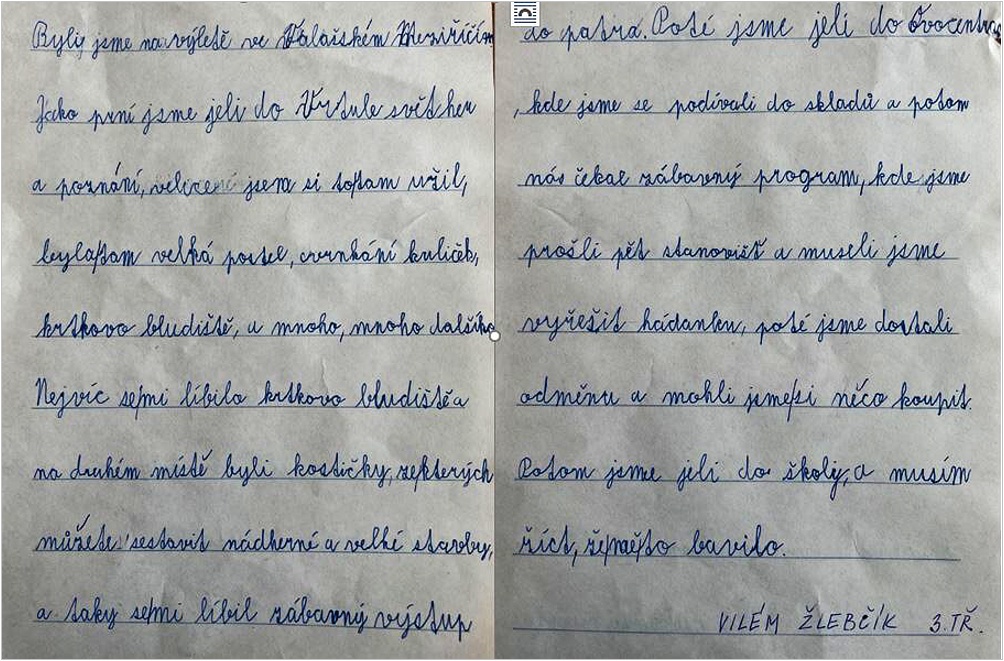 Byly jsme na výletě ve Valaiském Meziříčím
Jako první jsme jeli do Vrtule svět her
a poznání, velice jsem si to tam užil,
byla tam velká postel, cvrnkání kuliček,
krtkovo bludiště, a mnoho, mnoho dalšího
Nejvíc se mi líbilo krtkovo bludiště a
na druhém místě byli kostičky, ze kterých
můžete sestavit nádherné a velké stavby,
a taky se mi líbil zábavný výstup
do patra. Poté jsme jeli do Ovocentra
, kde jsme se podívali do skladů a potom
nás čekal zábavný program, kde jsme
prošli pět stanovišť a museli jsme
vyřešit hádanku, poté jsme dostali
odměnu a mohli jsme si něco koupit.
Potom jsme jeli do školy, a musím
říct, že mě to bavilo.
VILÉM ŽLEBČÍK 3.TŘ.